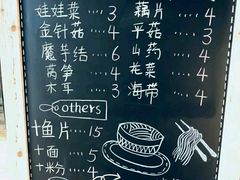 娃娃菜 3 藕片 4
金针菇 4 平菇 4
魔芋结 6 山药 4
莴笋 4 花菜 4
木耳 3 海带 4
others
+鱼片 15
+面 5
+米粉 4